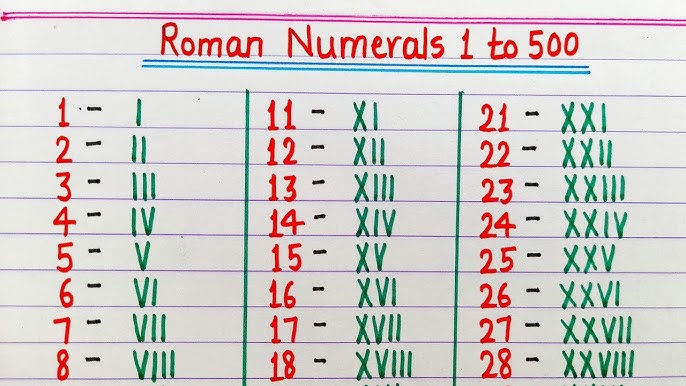 Roman Numerals 1 to 500
1 - I 11 - XI 21 - XXI
2 - II 12 - XII 22 - XXII
3 - III 13 - XIII 23 - XXIII
4 - IV 14 - XIV 24 - XXIV
5 - V 15 - XV 25 - XXV
6 - VI 16 - XVI 26 - XXVI
7 - VII 17 - XVII 27 - XXVII
8 - VIII 18 - XVIII 28 - XXVIII